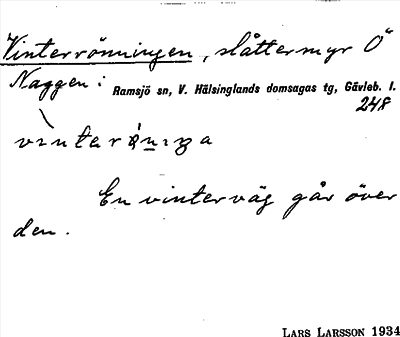 Vinterrönningen, slåttermyr O
Naggen: Ramsjö sn, V. Hälsinglands domsagas tg, Gävleb. l.
248
En vinterväg går över
den.
LARS LARSSON 1934